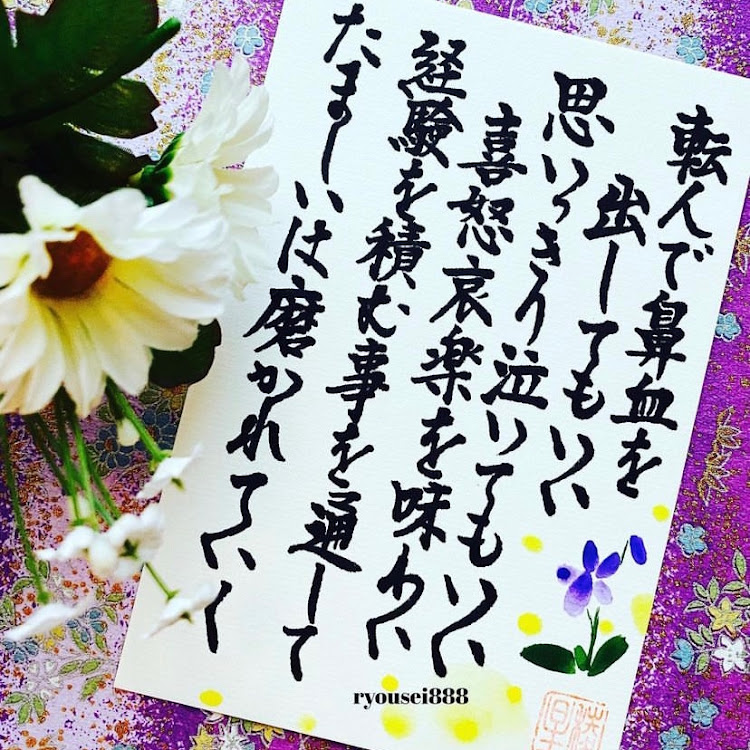 転んで鼻血を
出してもいい
思いっきり泣いてもいい
喜怒哀楽を味わい
経験を積む事を通して
たましいは磨かれていく
ryousei888